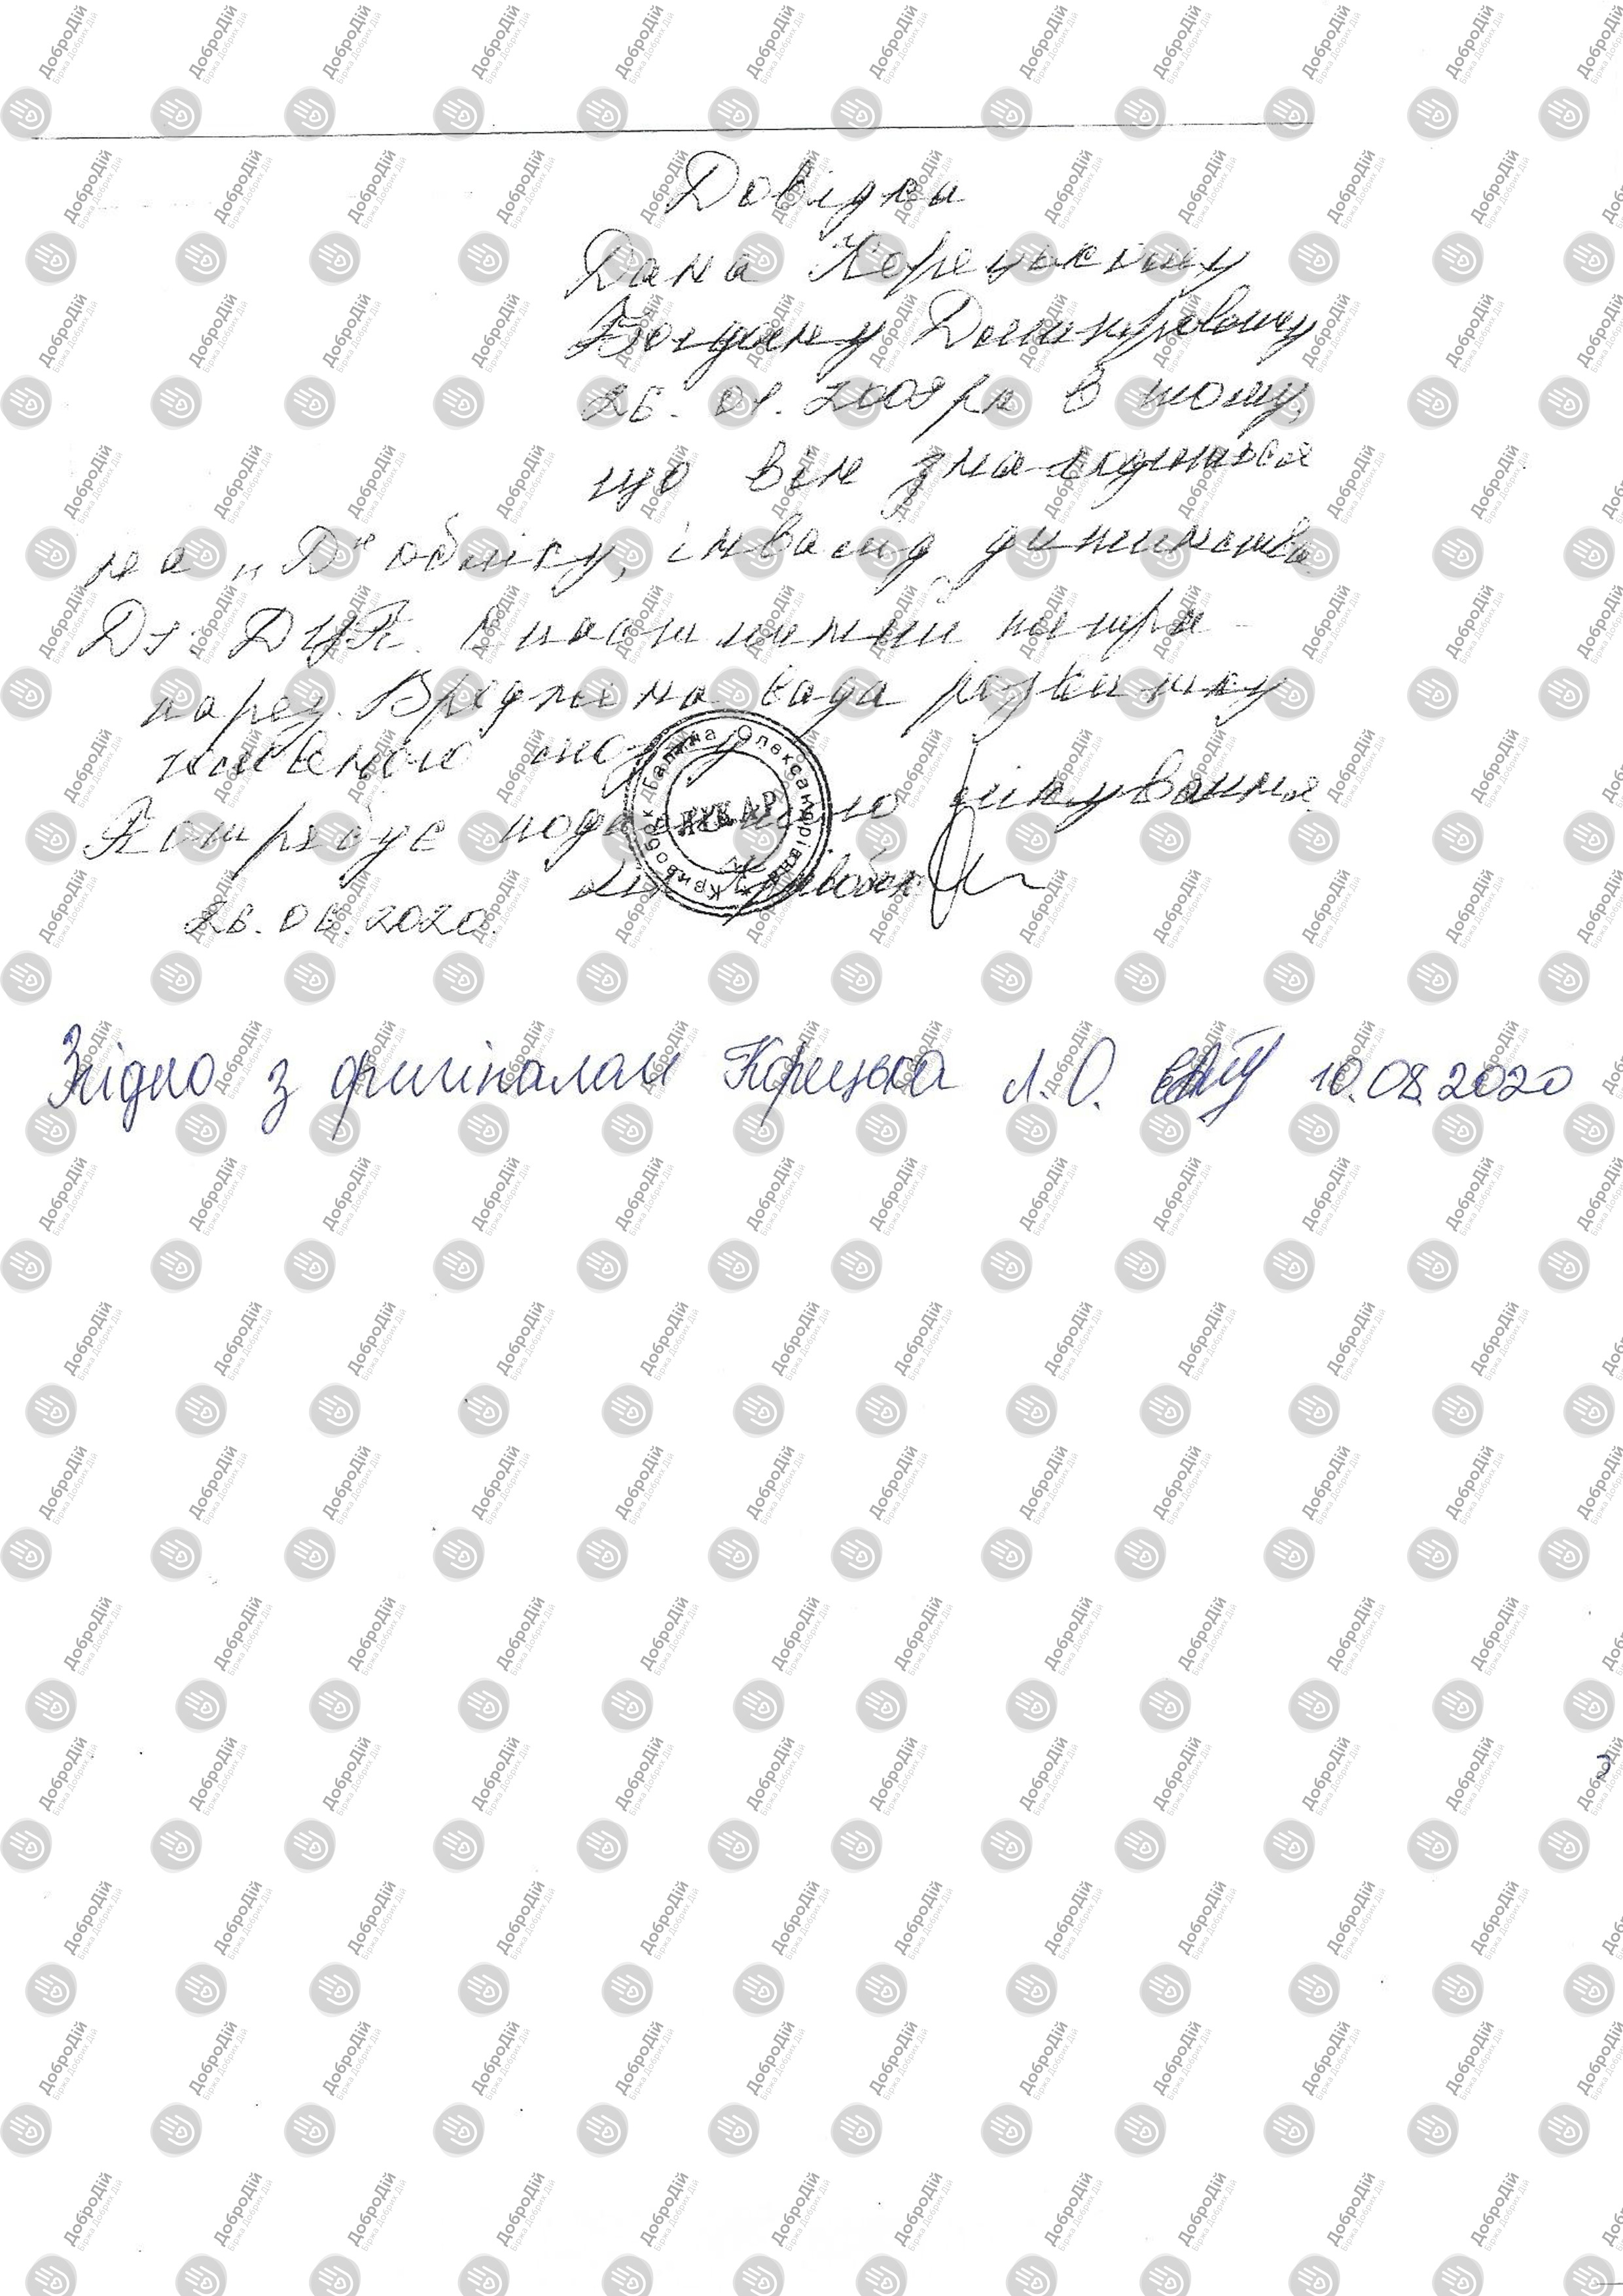 Довідка
Дана Корецькому
Богдану Дмитровичу
26.01.2009 рн в тому,
що він знаходиться
на „Д" обліку, інвалід дитинства
Ds: ДЦП. Спастичний тетра-
парез. Вроджена вада розвитку
головного мозку
Потребує подальшого лікування
Кривобок
26.06.2020.
Кривобок Галина Олександрівна
ЛІКАР
Згідно з оригіналом Корецька Л.О. 10.08.2020
ДоброДій
Біржа Добрих Дій